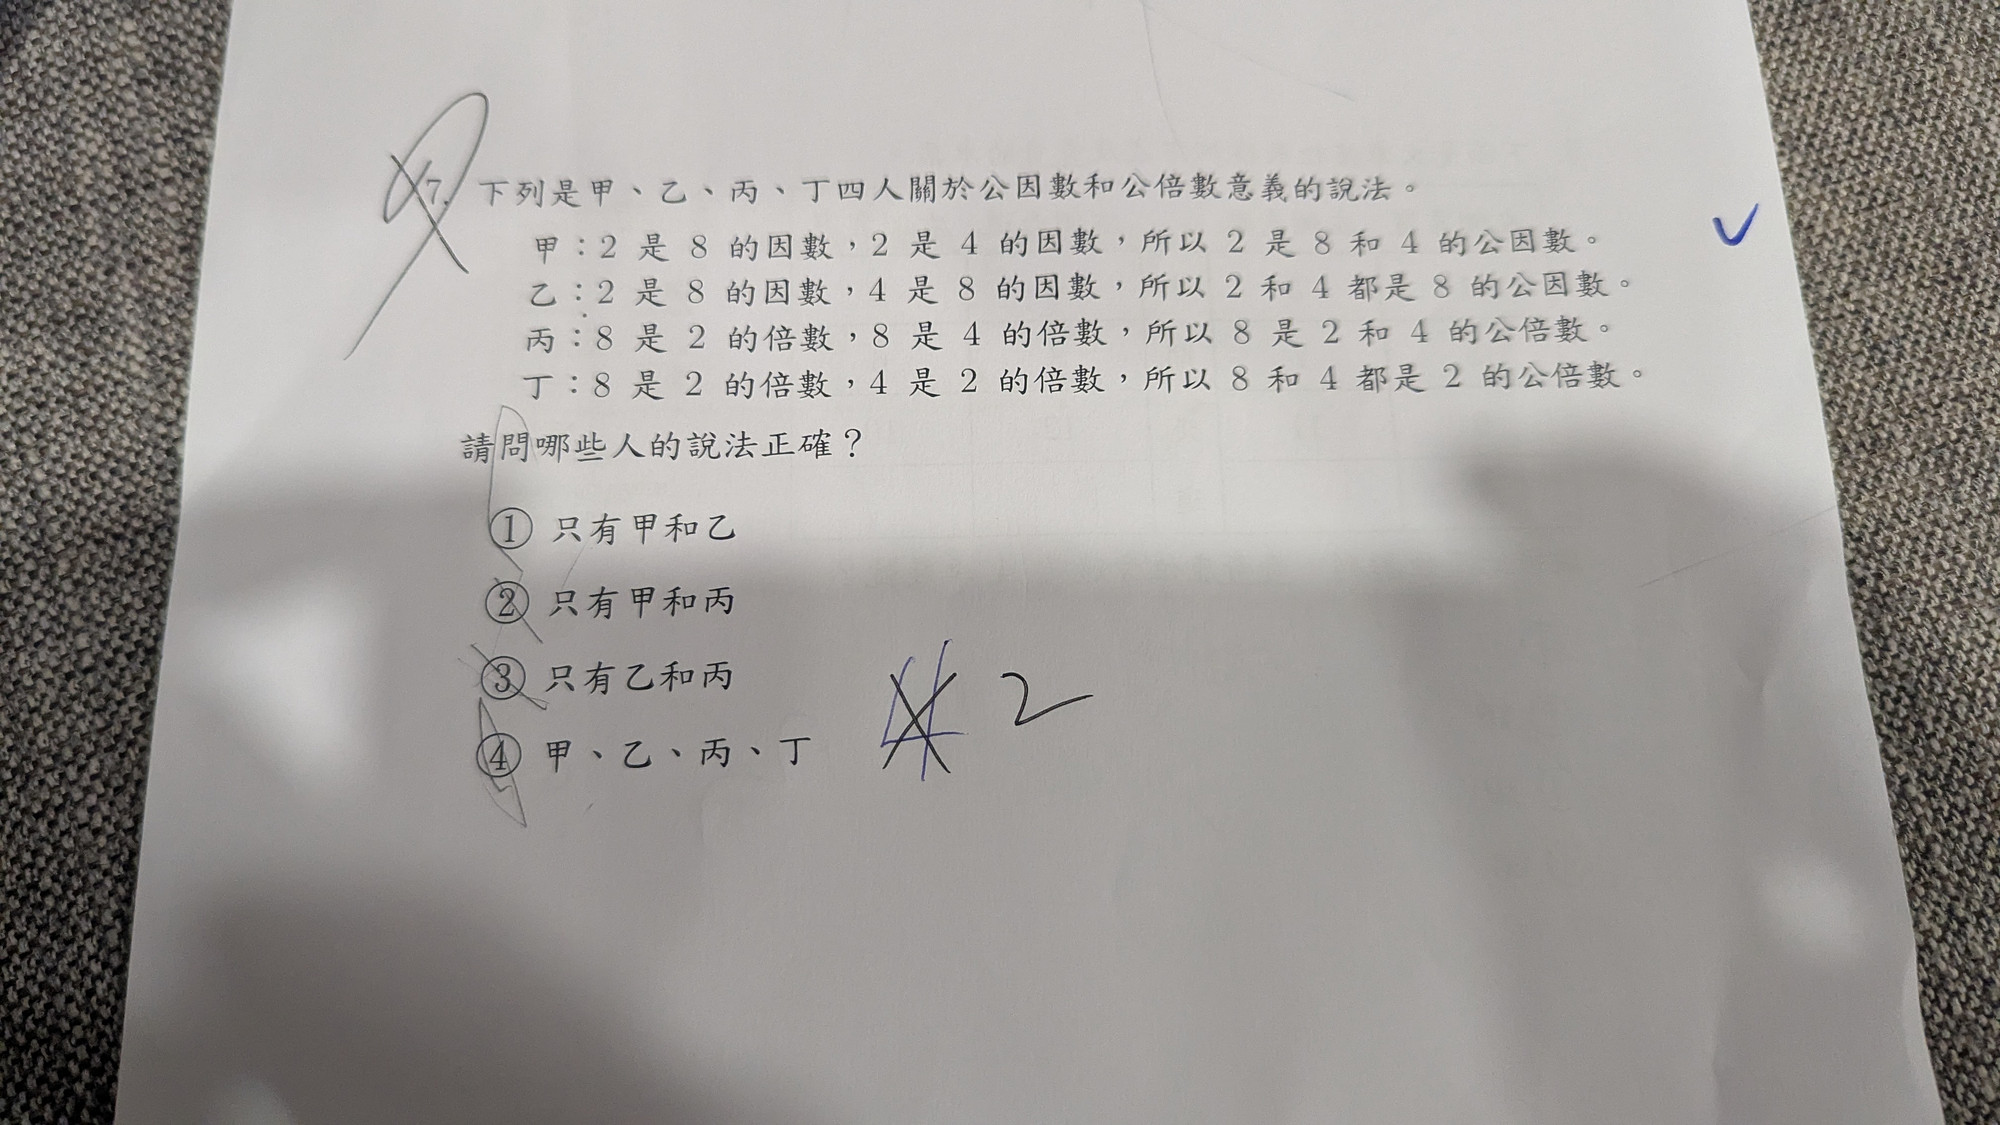 7. 下列是甲、乙、丙、丁四人關於公因數和公倍數意義的說法。
甲：2 是 8 的因數，2 是 4 的因數，所以 2 是 8 和 4 的公因數。
乙：2 是 8 的因數，4 是 8 的因數，所以 2 和 4 都是 8 的公因數。
丙：8 是 2 的倍數，8 是 4 的倍數，所以 8 是 2 和 4 的公倍數。
丁：8 是 2 的倍數，4 是 2 的倍數，所以 8 和 4 都是 2 的公倍數。
請問哪些人的說法正確？
① 只有甲和乙
② 只有甲和丙
③ 只有乙和丙
④ 甲、乙、丙、丁
4 2